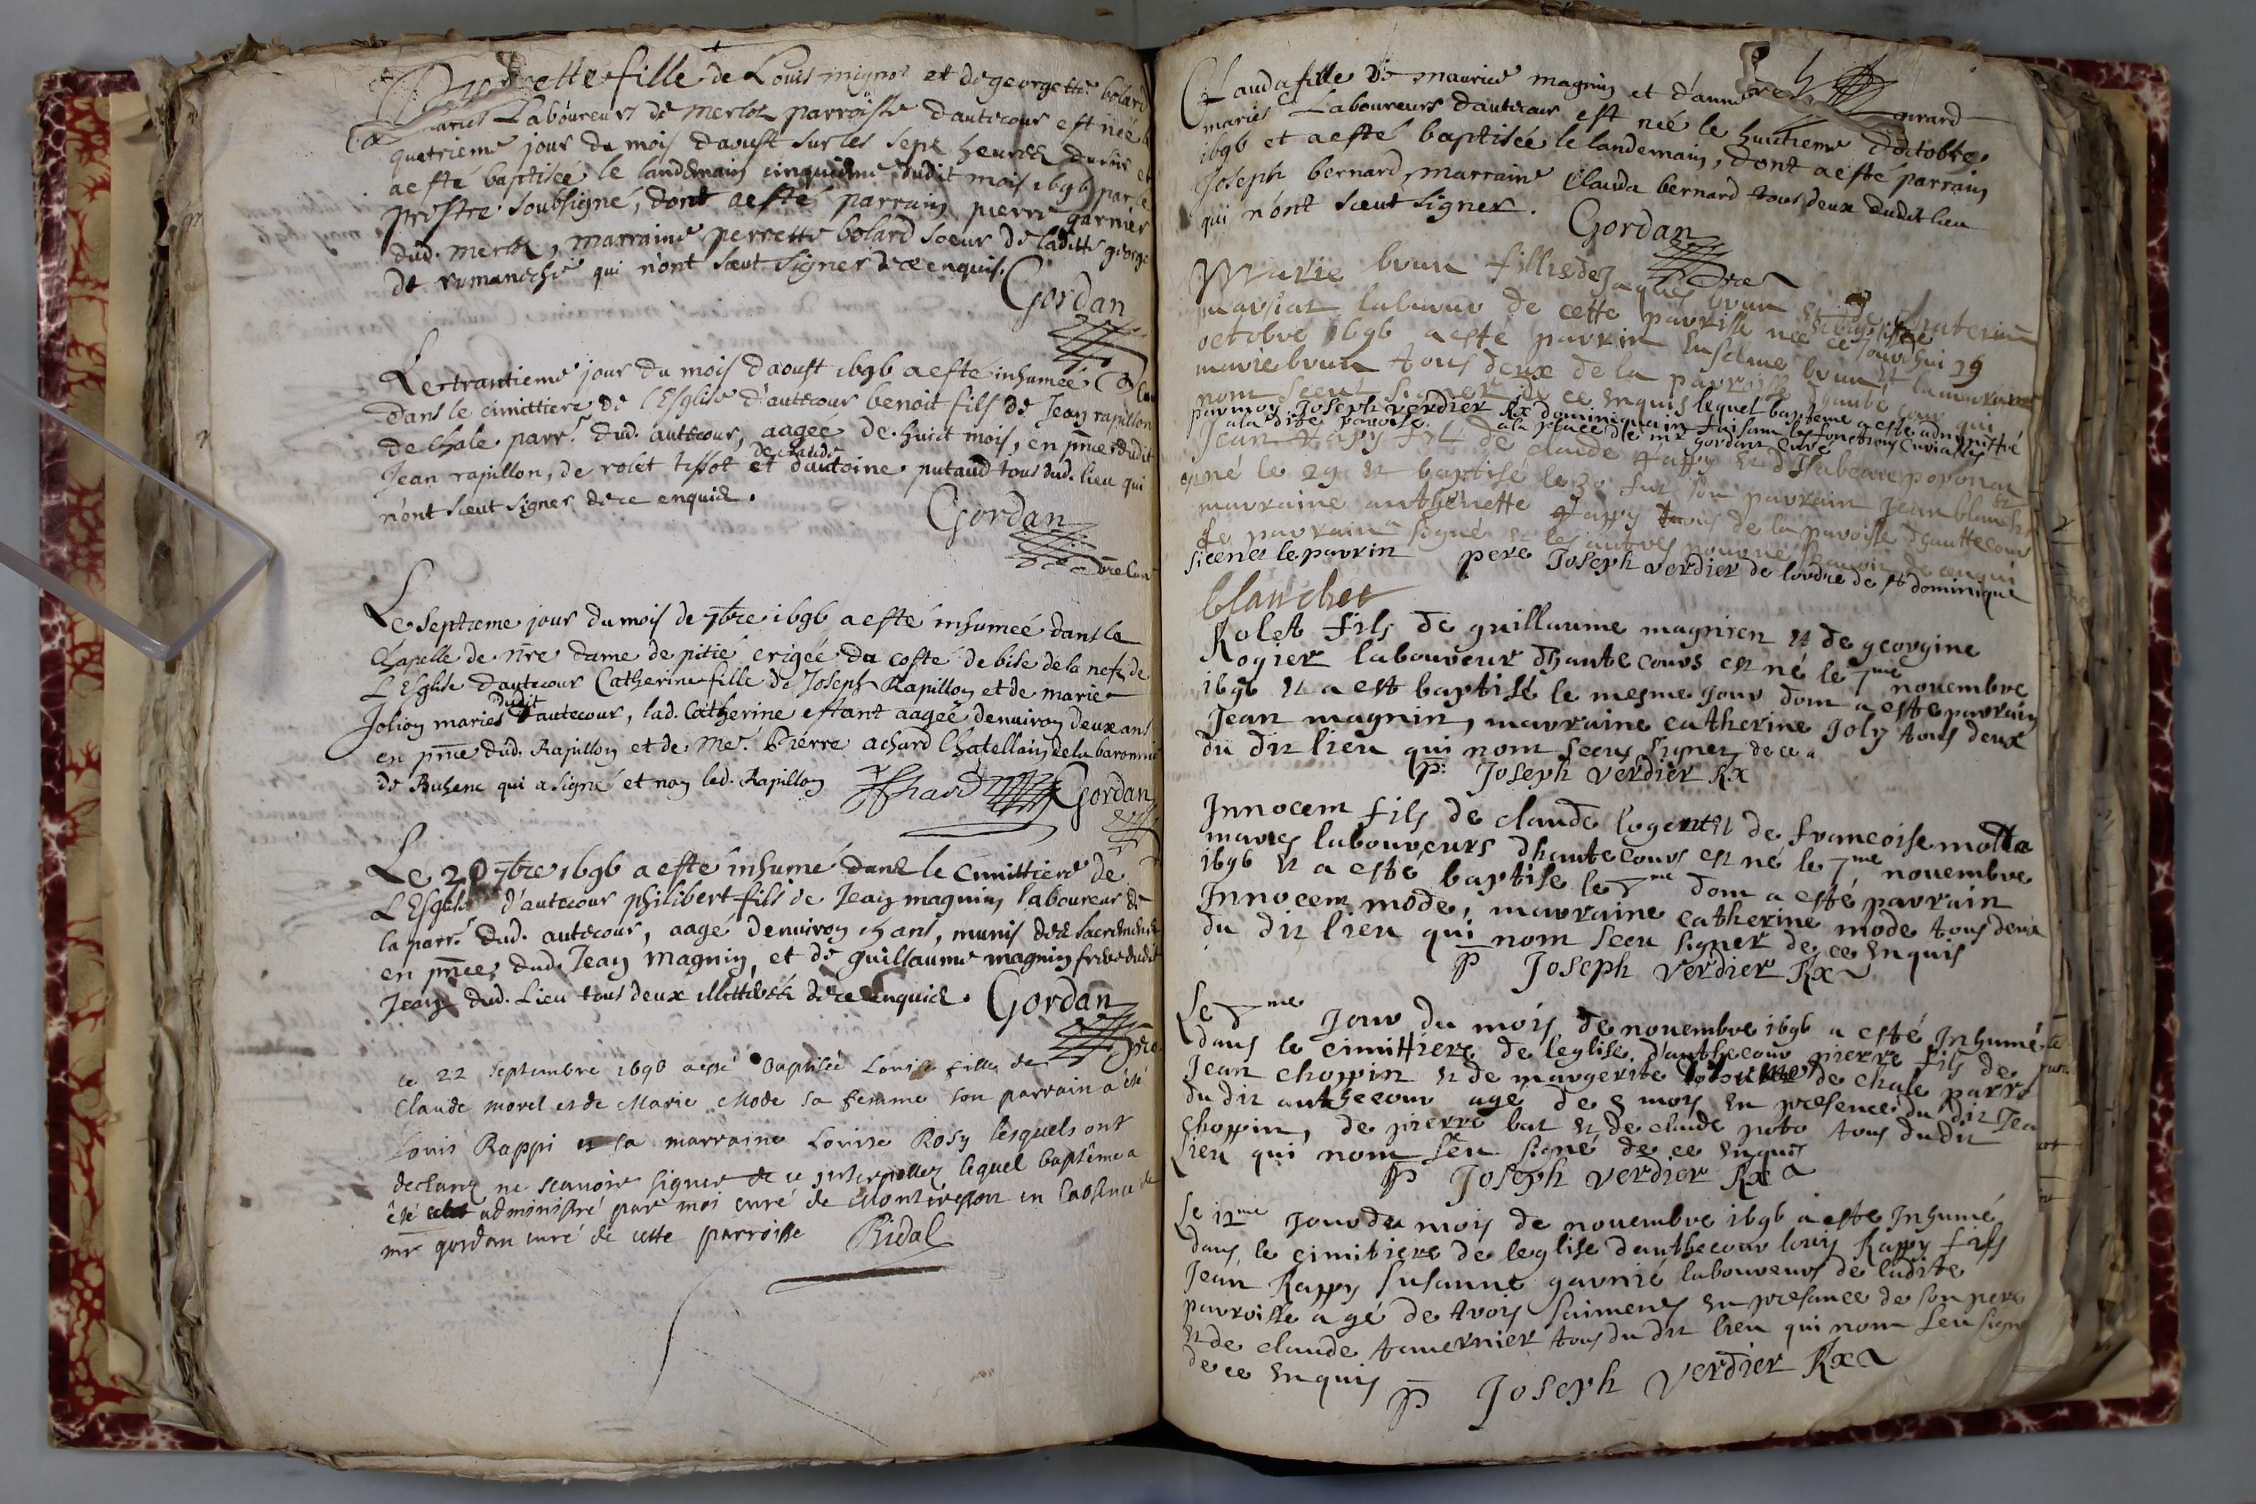 fille de Louis mignot et de georgette bolard
mariés Laboureurs de merlod parroisse dautecour est née
quatrieme jour du mois daoust sur les sept heures du soir et
a esté baptisée le landemain cinquieme dudit mois 1696 par le
prestre soubsigné, dont a esté parrain pierre garnier
dud. merlod, marraine perrette bolard soeur de laditte george
de romaneche qui n'ont sceut signer de ce enquis.
Gordan
Le trantieme jour du mois daoust 1696 a esté inhumée
dans le cimittiere de l'Esglise d'autecour benoit fils de Jean rapillon
de Chale parr.^e dud. autecour, aagée de huict mois, en pnce dudit
Jean rapillon, de rolet tissot et d'antoine putaud tous dud. lieu qui
n'ont sceut signer de ce enquis.
Gordan
Le septieme jour du mois de 7bre 1696 a esté inhumée dans la
Chapelle de nre dame de pitié erigée du costé de bise de la nef de
L'Esglise d'autecour Catherine fille de Joseph Rapillon et de marie
Jolion mariés dudit autecour, lad. Catherine estant aagée denuiron deux ans
en pnce dud. Rapillon et de Me. Pierre achard Chatellain de la baronnie
de Buhenc qui a signé et non led. Rapillon Achard Gordan
Le 20 7bre 1696 a esté inhumé dans le cimittiere de
L'Esglise d'autecour philibert fils de Jean magnin laboureur de
la parr.^e dud. autecour, aagé denuiron ans, munis des sacrements
en pnces dud. Jean Magnin, et de guillaume magnin frere dudit
Jean dud. Lieu tous deux illitterés de ce enquis. Gordan
le 22 septembre 1696 a esté Baptisée Louise fille de
Claude morel et de Marie Mode sa femme son parrain a été
Louis Rappi et sa marraine Louise Rosy lesquels ont
declaré ne scauoir signer de ce interpellez lequel baptême a
été administré par moi curé de en l'absence de
mr gordan curé de cette parroisse Ridal
Clauda fille de maurice magnin et d'anne
mariés Laboureurs dautecour est née le huitieme d'octobre
1696 et a esté baptisée le landemain, dont a esté parrain
Joseph bernard, marraine Clauda bernard tous deux dudit lieu
qui n'ont sceut signer. Gordan
Marie brun fillie de Jaques brun et de
marsiat labureur de cette parrisse née ce jourdhui 29
octobre 1696 a este parrin Anselme brun et la marraine
marie brun tous deux de la parrisse dhautecour qui
nom sceu signer de ce enquis lequel bapteme a esté administré
par moy Joseph verdier Rx dominiquain faisant les fonctions curiales
a la dite paroise a la place de mr gordan curé
Jean Rapy fils de claude Rappy et d'Isabeau poponat
né le 29 et baptisé le 30 fut son parrain Jean blanchet
marraine anthenette Rappy tous de la paroisse dhauttecour
le parrain signé et les autres pour ne scavoir de ce enqui
sicenes le parrin pere Joseph verdier de lordre de st dominique
blanchet
Rolet fils de guillaume magniren et de georgine
Rogier laboureur dhautecours est né le 7me novembre
1696 et a est baptisé le mesme jour dom a este parrain
Jean magnin, marraine catherine Joly tous deux
du dit lieu qui nom sceu signer de ce
p: Joseph verdier Rx
Innocem fils de claude logerot et de francoise motte
mariés laboureurs dhautecours est né le 7me novembre
1696 et a esté baptise le 7me dom a esté parrain
Innocem mode, marraine catherine mode tous deux
du dit lieu qui nom sceu signer de ce enquis
p Joseph verdier Rx
Le 7me jour du mois de novembre 1696 a esté Inhumé
dans le cimittiere de leglise d'authecour pierre fils de
Jean choppin et de margerite de chale parr
du dit authecour agé de 8 mois en presence du dit Jea
choppin, de pierre bat et de claude poto tous du dit
lieu qui nom seu signé de ce enquis
p Joseph verdier Rx
Le 12me jour du mois de novembre 1696 a este Inhumé
dans le cimitiere de leglise d'authecour louis Rappy fils
Jean Rappy susanne garnié laboureurs de ladite
parroisse agé de trois saimenes en presance de son pere
et de claude tavernier tous du dit lieu qui nom seu signé
de ce enquis p Joseph verdier Rx